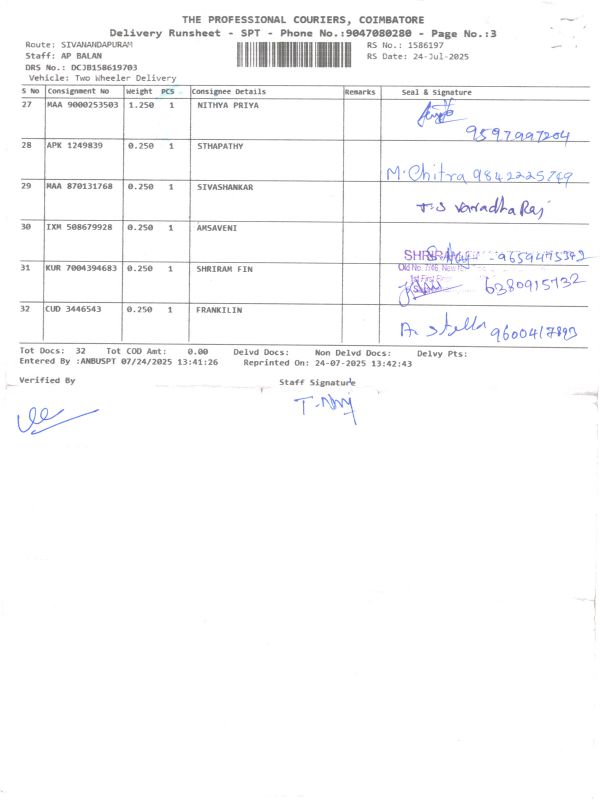 THE PROFESSIONAL COURIERS, COIMBATORE
Delivery Runsheet - SPT - Phone No.:9047080280 - Page No.:3
Route: SIVANANDAPURAM RS No.: 1586197
Staff: AP BALAN RS Date: 24-Jul-2025
DRS No.: DCJB158619703
Vehicle: Two Wheeler Delivery
S No Consignment No Weight PCS Consignee Details Remarks Seal & Signature
27 MAA 9000253503 1.250 1 NITHYA PRIYA
9597997204
28 APK 1249839 0.250 1 STHAPATHY
M. Chitra 9842225749
29 MAA 870131768 0.250 1 SIVASHANKAR
T.S VarradhaRaj
30 IXM 508679928 0.250 1 AMSAVENI
SHRIRAM 9659475342
Old No: 7/46 New
31 KUR 7004394683 0.250 1 SHRIRAM FIN
1st First 6380915732
32 CUD 3446543 0.250 1 FRANKILIN
A. Stella 9600417893
Tot Docs: 32 Tot COD Amt: 0.00 Delvd Docs: Non Delvd Docs: Delvy Pts:
Entered By :ANBUSPT 07/24/2025 13:41:26 Reprinted On: 24-07-2025 13:42:43
Verified By Staff Signature